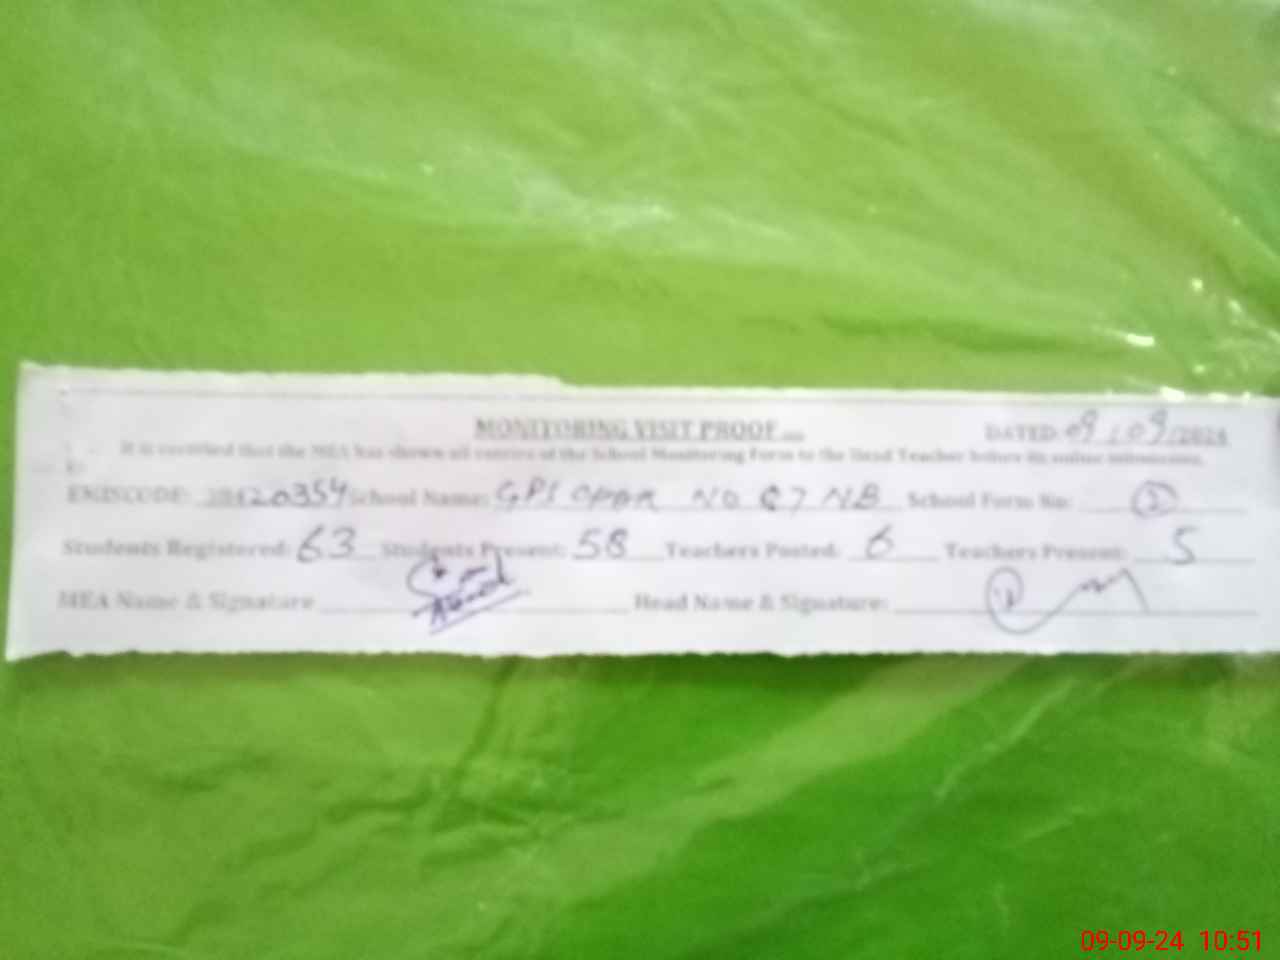 MONITORING VISIT PROOF
DATED: 09/09/2024
It is certified that the MEA has shown all entries of the School Monitoring Form to the Head Teacher before its online submission.
EMISCODE: 38420354 School Name: GPS NO 87 NB School Form No: 2
Students Registered: 63 Students Present: 58 Teachers Posted: 6 Teachers Present: 5
MEA Name & Signature Head Name & Signature:
09-09-24 10:51